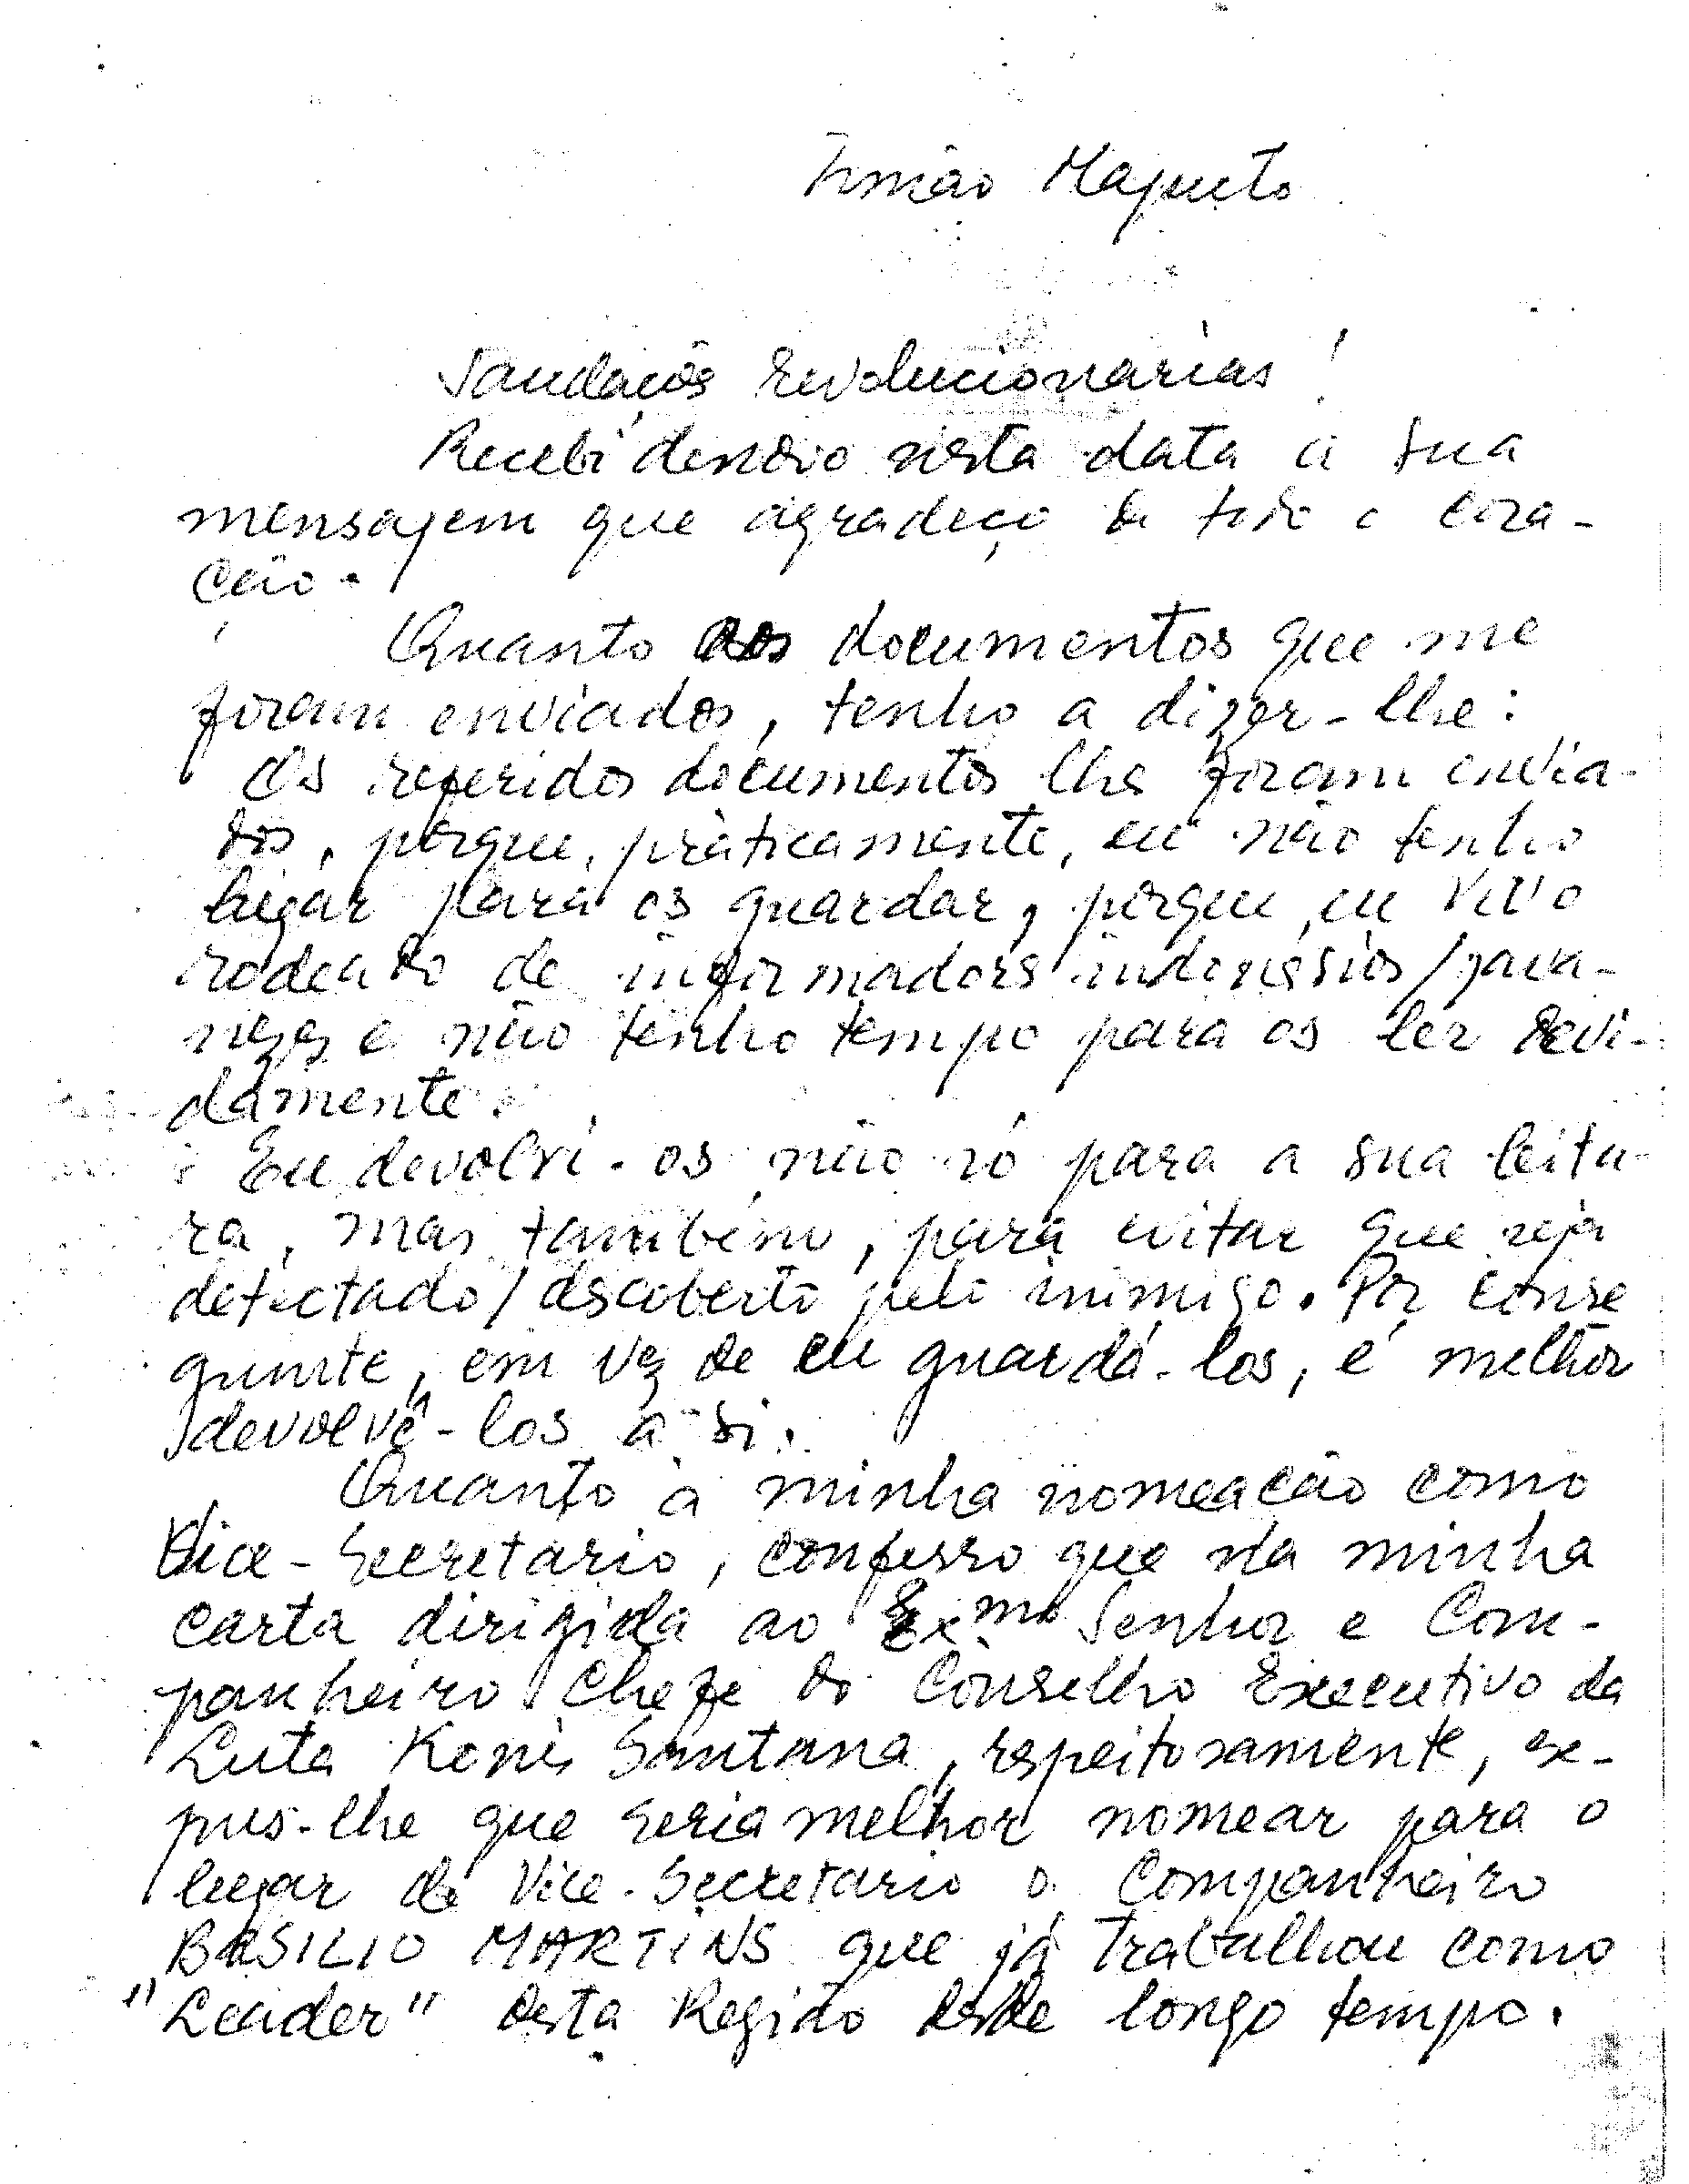 Irmão Maputo
Saudações Revolucionárias!
Recebi denovo nesta data a sua
mensagem que agradeço de todo o cora-
ção.
Quanto aos documentos que me
foram enviados, tenho a dizer-lhe:
Os referidos documentos lhe foram envia-
dos, porque, práticamente, eu não tenho
lugar para os guardar, porque eu vivo
rodeado de informadores indonésios/java-
nezes e não tenho tempo para os ler devi-
damente.
Eu devolvi-os não só para a sua leitu-
ra, mas também, para evitar que seja
detectado/descoberto pelo inimigo. Por conse
guinte, em vez de eu guardá-los, é melhor
devolvê-los a si.
Quanto à minha nomeação como
Vice-Secretario, confesso que na minha
carta dirigida ao Ex.mo Senhor e Com-
panheiro Chefe do Conselho Executivo da
Luta Konis Santana, respeitosamente, ex-
pus-lhe que seria melhor nomear para o
lugar de Vice-Secretario o Companheiro
BASILIO MARTINS que já trabalhou como
"Leader" desta Região desde longo tempo.